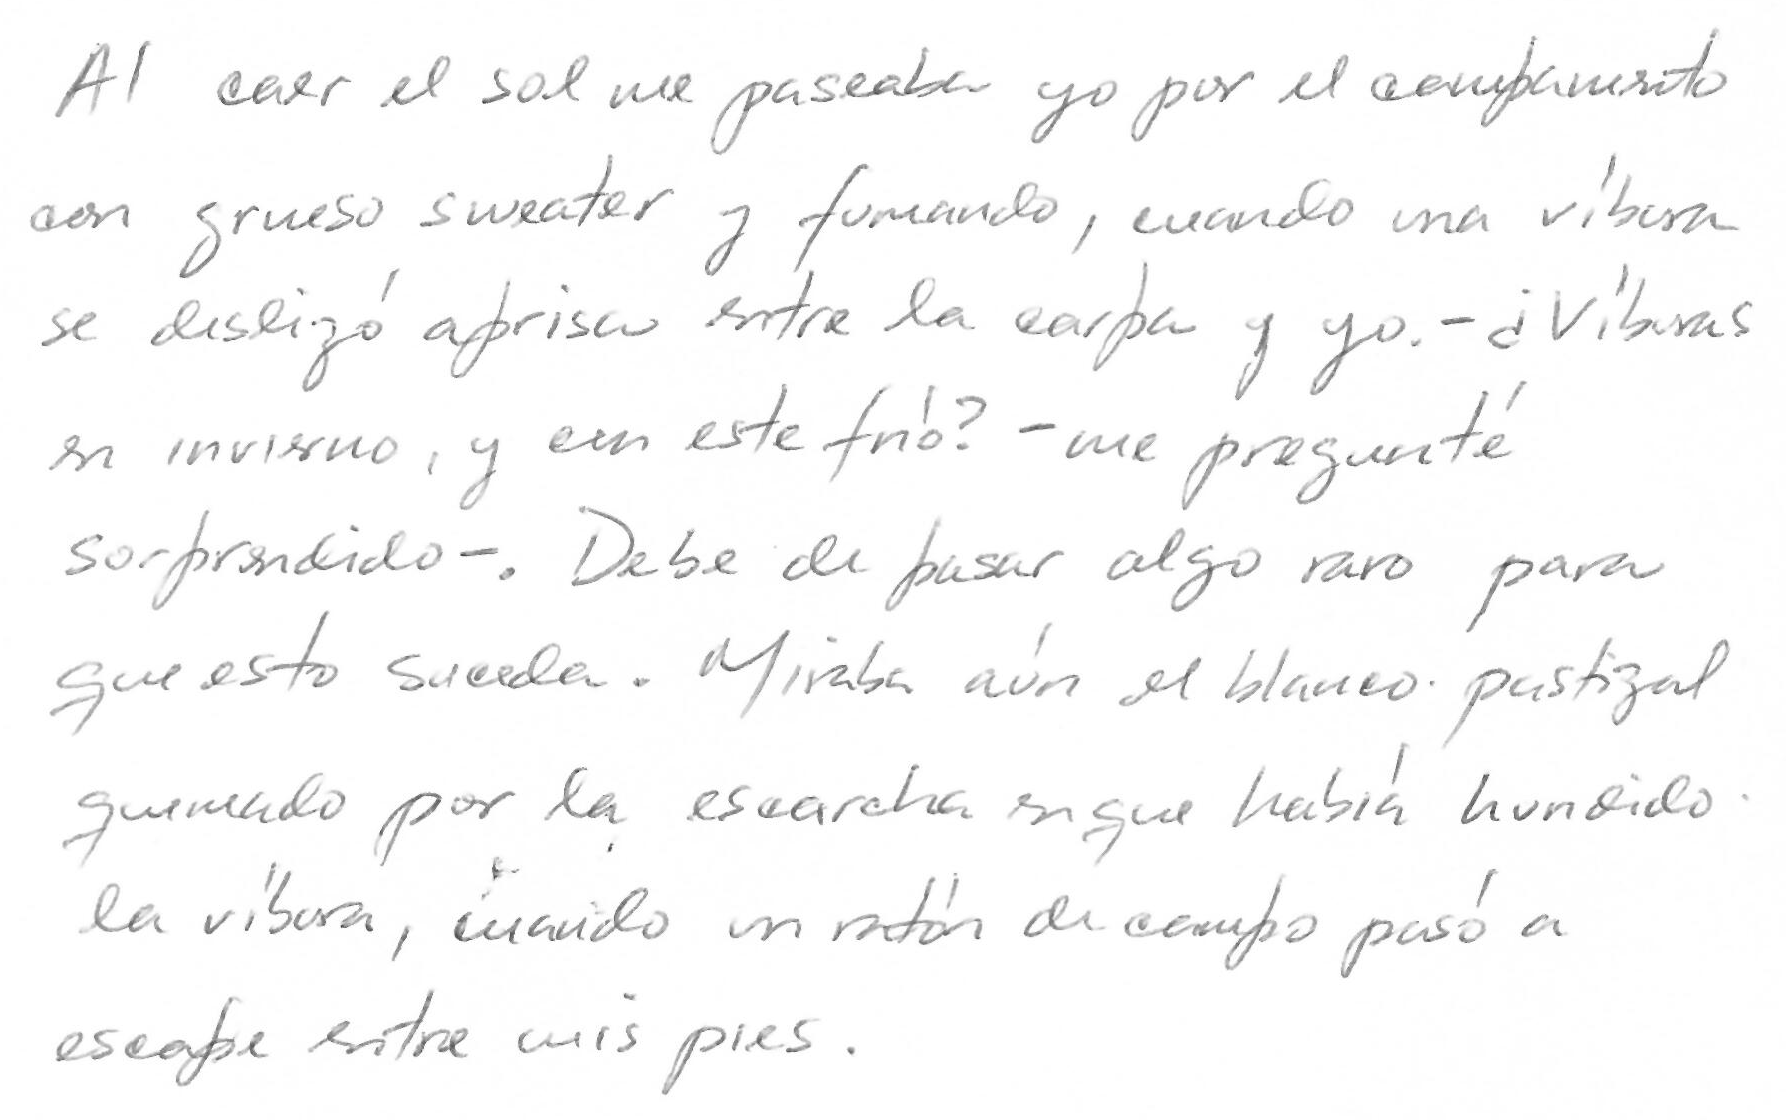 Al caer el sol me paseaba yo por el campamento
con grueso sweater y fumando, cuando una víbora
se deslizó aprisa entre la carpa y yo. - ¿Víboras
en invierno, y con este frío? - me pregunté
sorprendido -. Debe de pasar algo raro para
que esto suceda. Miraba aún el blanco pastizal
quemado por la escarcha en que había hundido
la víbora, cuando un ratón de campo pasó a
escape entre mis pies.